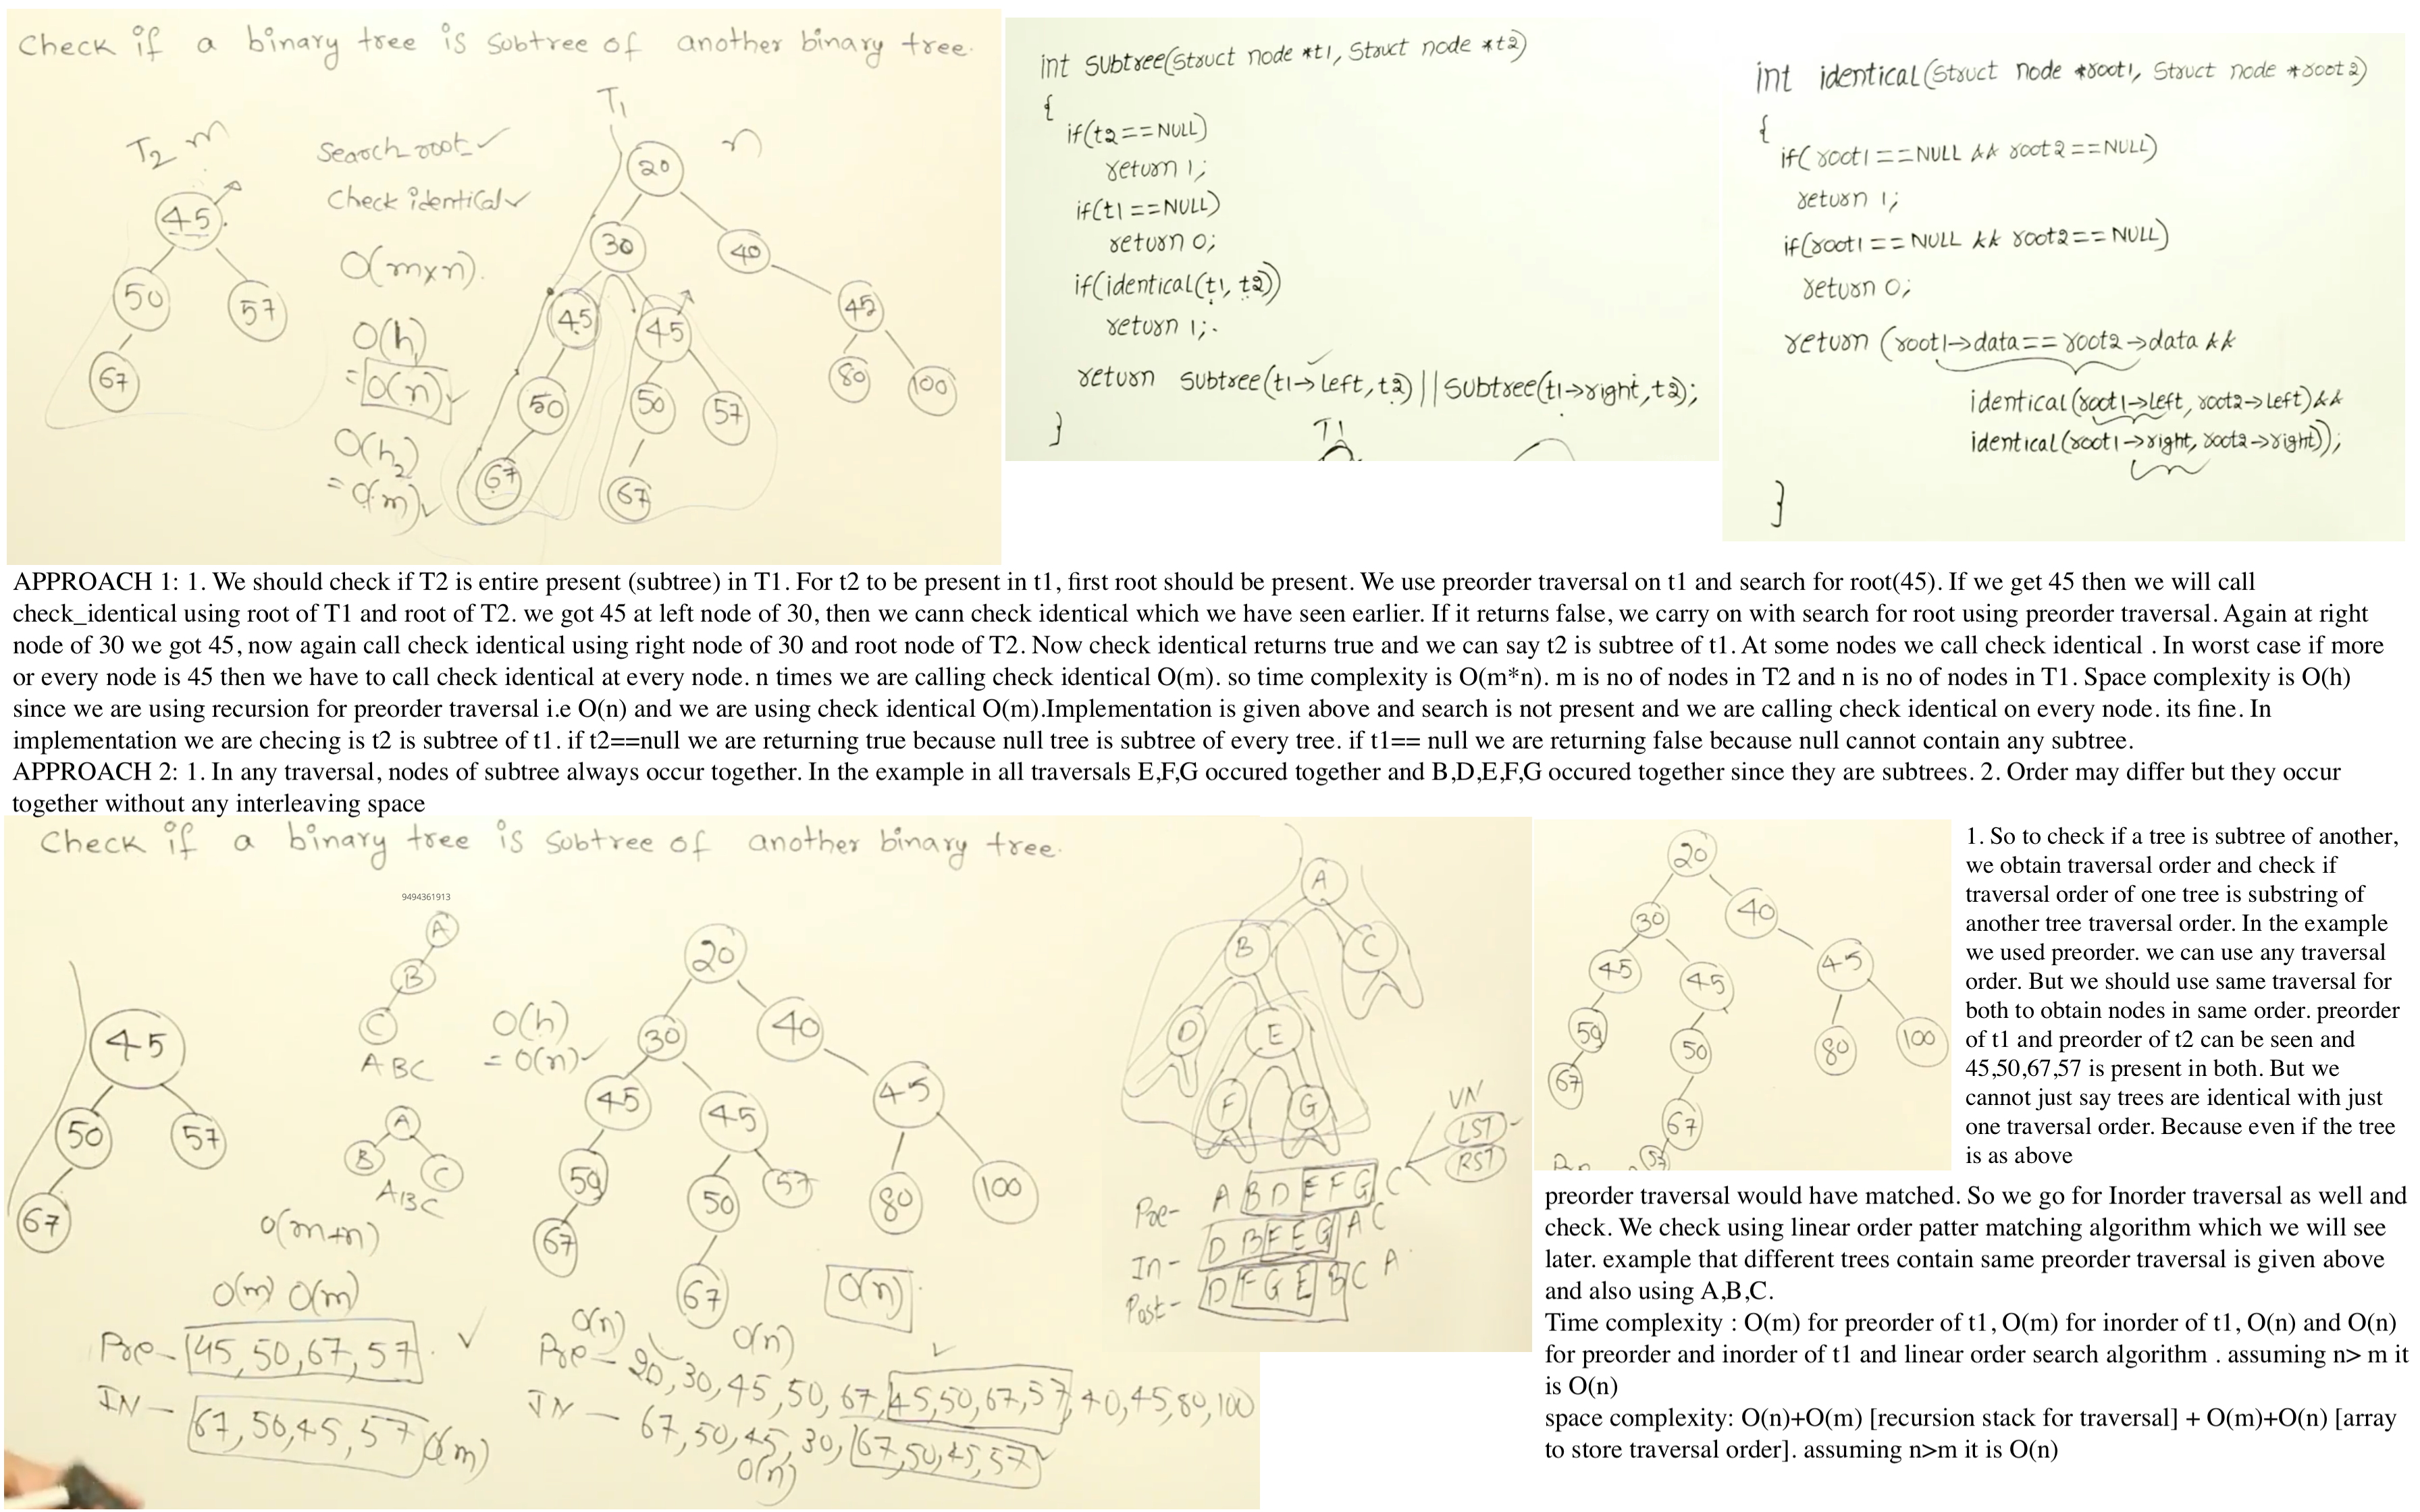 Check if a binary tree is subtree of another binary tree.
T1
T2 m
n
Search root ✓
Check identical ✓
O(m×n).
O(h1)
= O(n) ✓
O(h2)
= O(m) ✓
45
50
57
67
20
30
40
45
45
45
50
50
57
80
100
67
67
int subtree(struct node *t1, struct node *t2)
{
if(t2==NULL)
return 1;
if(t1==NULL)
return 0;
if(identical(t1, t2))
return 1;
return subtree(t1→left, t2) || subtree(t1→right, t2);
}
T1
int identical(struct node *root1, struct node *root2)
{
if(root1==NULL && root2==NULL)
return 1;
if(root1==NULL && root2==NULL)
return 0;
return (root1→data==root2→data &&
identical(root1→left, root2→left)&&
identical(root1→right, root2→right));
}
APPROACH 1: 1. We should check if T2 is entire present (subtree) in T1. For t2 to be present in t1, first root should be present. We use preorder traversal on t1 and search for root(45). If we get 45 then we will call
check_identical using root of T1 and root of T2. we got 45 at left node of 30, then we cann check identical which we have seen earlier. If it returns false, we carry on with search for root using preorder traversal. Again at right
node of 30 we got 45, now again call check identical using right node of 30 and root node of T2. Now check identical returns true and we can say t2 is subtree of t1. At some nodes we call check identical . In worst case if more
or every node is 45 then we have to call check identical at every node. n times we are calling check identical O(m). so time complexity is O(m*n). m is no of nodes in T2 and n is no of nodes in T1. Space complexity is O(h)
since we are using recursion for preorder traversal i.e O(n) and we are using check identical O(m).Implementation is given above and search is not present and we are calling check identical on every node. its fine. In
implementation we are checing is t2 is subtree of t1. if t2==null we are returning true because null tree is subtree of every tree. if t1== null we are returning false because null cannot contain any subtree.
APPROACH 2: 1. In any traversal, nodes of subtree always occur together. In the example in all traversals E,F,G occured together and B,D,E,F,G occured together since they are subtrees. 2. Order may differ but they occur
together without any interleaving space
Check if a binary tree is subtree of another binary tree.
9494361913
A
B
C
ABC
A
B
C
ABC
45
50
57
67
O(h)
= O(n) ✓
20
30
40
45
45
45
50
50
57
80
100
67
67
O(m+n)
O(m) O(m)
O(n)
O(n)
O(n)
Pre- 45,50,67,57 ✓
IN- 67,50,45,57 O(m)
Pre- 20,30,45,50,67,45,50,67,57,40,45,80,100
IN- 67,50,45,30,67,50,45,57
O(n)
A
B
C
D
E
F
G
VN
LST
RST
Pre- A B D E F G C
In- D B F E G A C
Post- D F G E B C A
20
30
40
45
45
45
50
50
80
100
67
67
57
1. So to check if a tree is subtree of another,
we obtain traversal order and check if
traversal order of one tree is substring of
another tree traversal order. In the example
we used preorder. we can use any traversal
order. But we should use same traversal for
both to obtain nodes in same order. preorder
of t1 and preorder of t2 can be seen and
45,50,67,57 is present in both. But we
cannot just say trees are identical with just
one traversal order. Because even if the tree
is as above
preorder traversal would have matched. So we go for Inorder traversal as well and
check. We check using linear order patter matching algorithm which we will see
later. example that different trees contain same preorder traversal is given above
and also using A,B,C.
Time complexity : O(m) for preorder of t1, O(m) for inorder of t1, O(n) and O(n)
for preorder and inorder of t1 and linear order search algorithm . assuming n> m it
is O(n)
space complexity: O(n)+O(m) [recursion stack for traversal] + O(m)+O(n) [array
to store traversal order]. assuming n>m it is O(n)